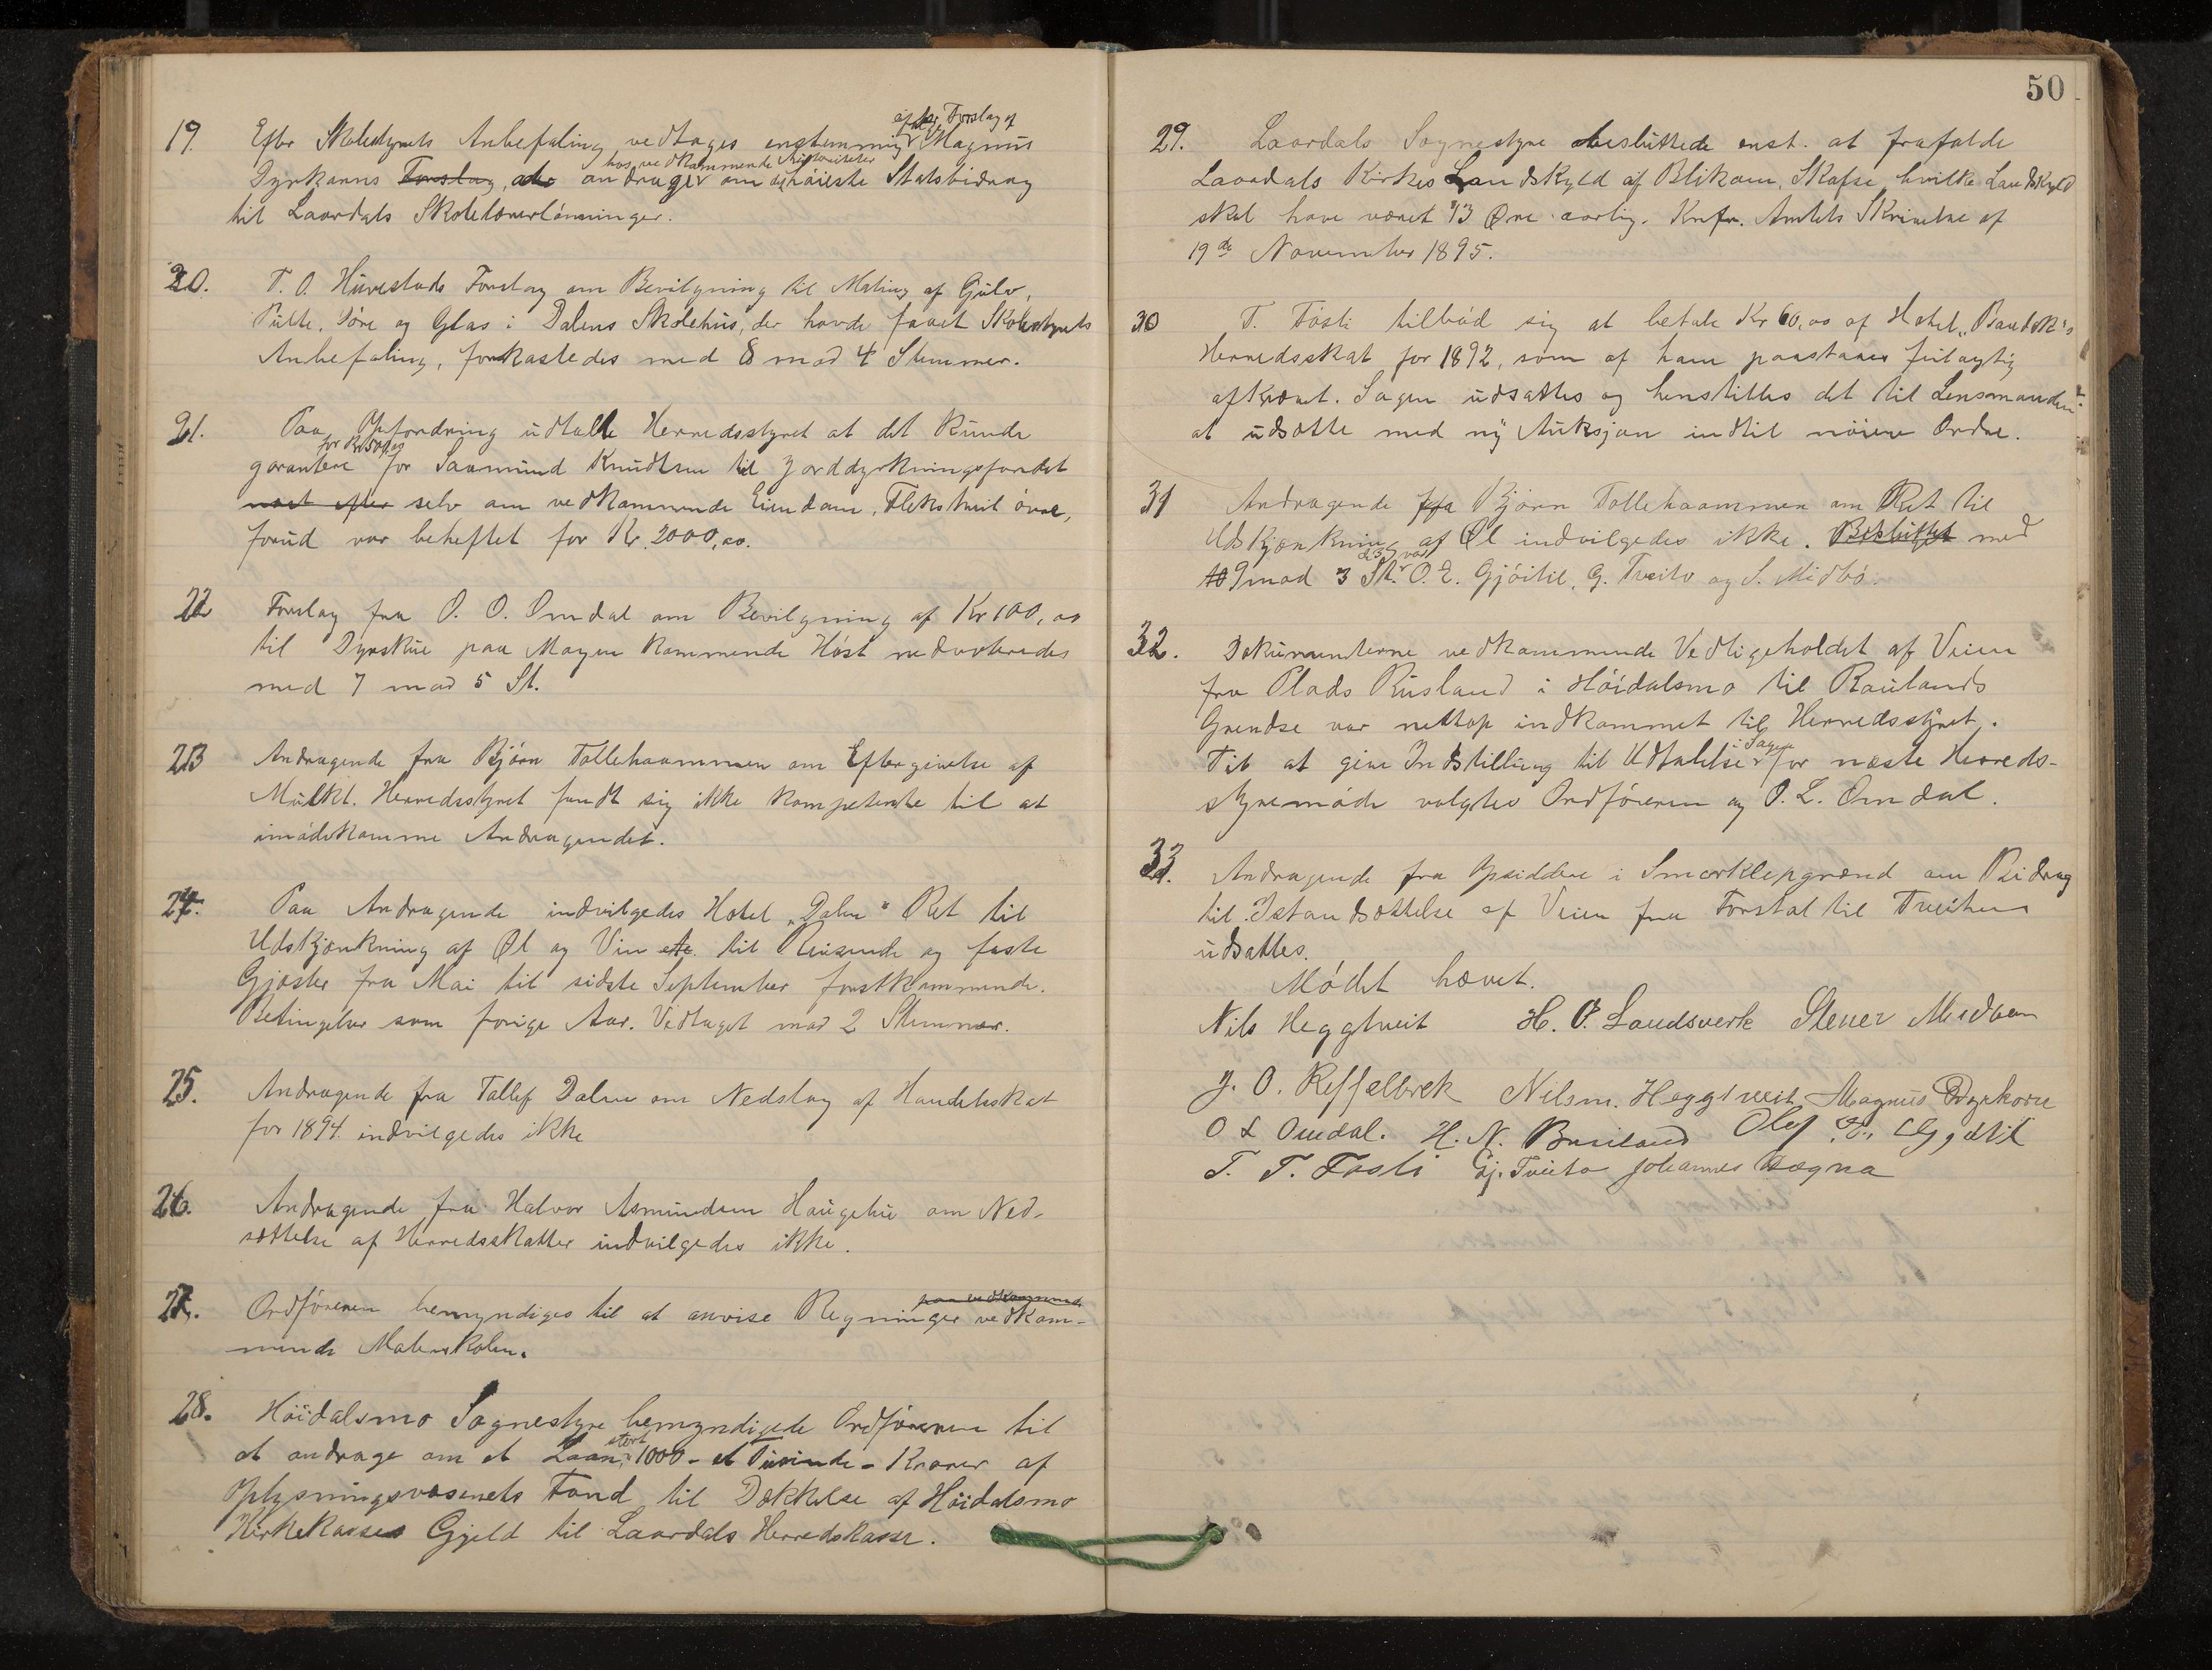 50
19. Efter Skolestyrets Anbefaling vedtages enstemmig efter Forslag af Magnus
Dyrkorns Forslag, at andrage hos vedkommende Autoriteter om det høieste Statsbidrag
til Laardals Skolelærerlønninger.
20. T. O. Huvestads Forslag om Bevilgning til Maling af Gulv,
Pulte, Døre og Glas i Dalens Skolehus, der havde faaet Skolestyrets
Anbefaling, forkastedes med 8 mod 4 Stemmer.
21. Paa Opfordring udtalte Herredsstyret at det kunde
garantere for Kr 500,00 for Saamund Knudtsen til Jorddyrkningsfondet
næst efter selv om vedkommende Eiendom, Flekstveit øvre,
forud var beheftet for Kr. 2000,00.
22 Forslag fra O. O. Omdal om Bevilgning af Kr 100,00
til Dyrskue paa Mogen kommende Høst nedvoteredes
med 7 mod 5 St.
23 Andragende fra Bjørn Tollehaammen om Eftergivelse af
Mulkt. Herredsstyret fandt sig ikke kompetente til at
imødekomme Andragendet.
24. Paa Andragende indvilgedes Hotel „Dalen" Ret til
Udskjænkning af Øl og Vin etc. til Reisende og faste
Gjæster fra Mai til sidste September førstkommende.
Betingelser som forige Aar. Vedtaget mod 2 Stemmer.
25. Andragende fra Tallef Dalen om Nedslag af Handelsskat
for 1894 indvilgedes ikke
26. Andragende fra Halvor Asmundsen Haugelie om Ned-
sættelse af Herredsskatter indvilgedes ikke.
27. Ordføreren bemyndiges til at anvise Regninger paa vedkommende vedkom-
mende Malerskolen.
28. Høidalsmo Sognestyre bemyndigede Ordføreren til
at andrage om et Laan, stort 1000 - et Tusinde - Kroner af
Oplysningsvæsenets Fond til Dækkelse af Høidalsmo
Kirkekasses Gjeld til Laardals Herredskasse.
29. Laardals Sognestyre besluttede enst. at frafalde
Laardals Kirkes Landskyld af Blikom, Skafse, hvilke Landskyld
skal have været 13 Øre aarlig. Knfr. Amtets Skrivelse af
19de November 1895.
30 T. Fosli tilbød sig at betale Kr 60,00 af Hotel „Bandak"s
Herredsskat for 1892, som af ham paastaaes feilagtig
afkrævet. Sagen udsattes og henstilles det til Lensmanden
at udsætte med ny Auksjon indtil nøiere Ordre.
31 Andragende fra Bjørn Tollehaammen om Ret til
Udskjænkning af Øl indvilgedes ikke. Besluttet med
10 9 mod 3 St. de 3 var O. E. Gjøitil, G. Tveito og S. Midbø.
32. Dokumenterne vedkommende Vedligeholdet af Veien
fra Plads Rusland i Høidalsmo til Raulands
Grendse var nettop indkommet til Herredsstyret.
Til at give Indstilling til Udtalelse i Sagen for næste Herreds-
styremøde valgtes Ordføreren og O. L. Omdal.
33. Andragende fra Opsiddere i Smørklepgrænd om Bidrag
til Istandsættelse af Veien fra Forstal til Tveiten
udsattes.
Mødet hævet.
Nils Heggtveit H. O. Landsverk Stener Midbøen
J. O. Reffelbrek Nils m. Heggtveit Magnus Dyrkorn
O L Omdal. H. N. Berland Olef E. Gjøitil
T. T. Fosli Gj. Tveito Johannes Sogna